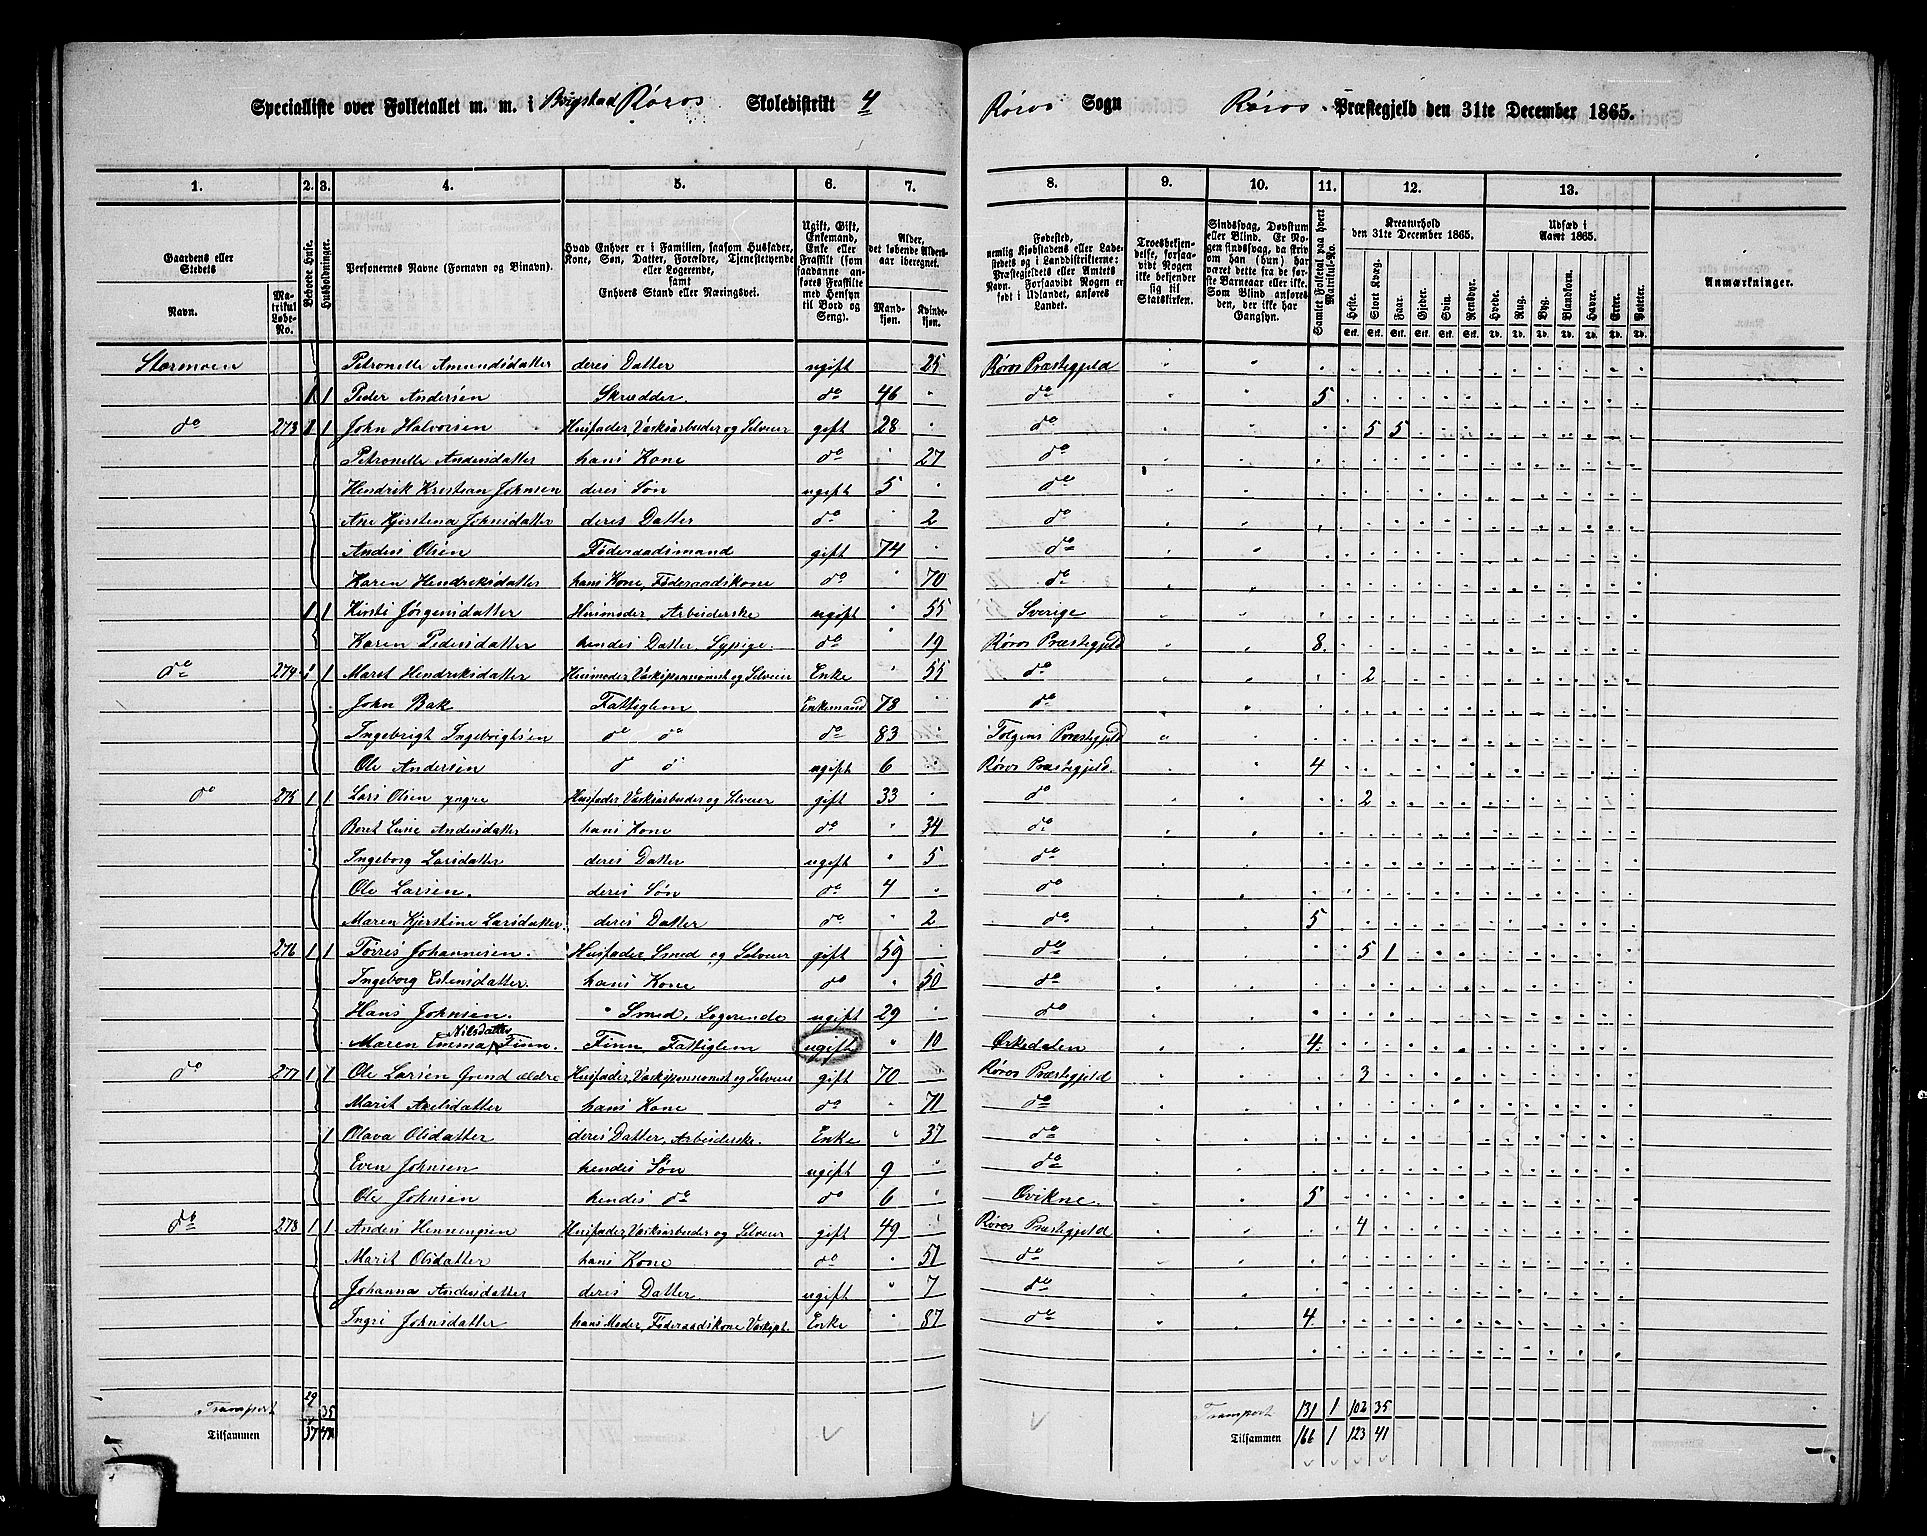 Specialliste over Folketallet m. m. i Bergstad Røros Skoledistrikt 4 Røros Sogn Røros Præstegjeld den 31te December 1865.
1. 2. 3. 4. 5. 6. 7. 8. 9. 10. 11. 12. 13.
Gaardens eller Stedets Navn. Matrikul Løbe-No. Beboede Huse. Husholdninger. Personernes Navne (Fornavn og Binavn). Hvad Enhver er i Familien, saasom Husfader, Kone, Søn, Datter, Forældre, Tjenestetyende eller Logerende, samt Enhvers Stand eller Næringsvei. Ugift, Gift, Enkemand, Enke eller Fraskilt (som saadanne anføres Fraskilte med Hensyn til Bord og Seng). Alder, det løbende Aldersaar iberegnet. Mandkjøn. Kvindekjøn. Fødested, nemlig Kjøbstadens eller Ladestedets og i Landdistrikterne: Præstegjeldets eller Amtets Navn. Forsaavidt Nogen er født i Udlandet, anføres Landet. Troesbekjendelse, forsaavidt Nogen ikke bekjender sig til Statskirken. Sindssvag, Døvstum eller Blind. Er Nogen sindssvag, da skrives om han (hun) har været dette fra de første Barneaar eller ikke. Som Blind anføres den, der ikke har Gangsyn. Samlet Folketal paa hvert Matrikul-No. Kreaturhold den 31te December 1865. Heste. Stort Kvæg. Faar. Gjeder. Svin. Rensdyr. Udsæd i Aaret 1865. Hvede. Rug. Byg. Blandkorn. Havre. Erter. Poteter. Anmærkninger.
Stormoen Petronelle Amundsdatter deres Datter ugift 25 Røros Præstegjeld
1 1 Peder Andersen Skrædder. do 46 do 5
do 273 1 1 John Halvorsen Husfader, Værksarbeider og Selveier gift 28 do 5 5
Petronelle Andersdatter hans Kone do 27 do
Hendrik Kristian Johnsen deres Søn ugift 5 do
Ane Kjerstena Johnsdatter deres Datter do 2 do
Anders Olsen Føderaadsmand gift 74 do
Karen Hendriksdatter hans Kone, Føderaadskone do 70 do
1 1 Kirsti Jørgensdatter Husmoder, Arbeiderske ugift 55 Sverige
Karen Pedersdatter hendes Datter, Sypige. do 19 Røros Præstegjeld 8
do 274 1 1 Maret Hendriksdatter Husmoder Værkspensionist og Selveier Enke 55 do 2
John Bak Fattiglem Enkemand 73 do
Ingebrigt Ingebrigtsen do do do 83 Tolgens Præstegjeld
Ole Andersen d d ugift 6 Røros Præstegjeld. 4
do 275 1 1 Lars Olsen yngre Husfader Værksarbeider og Selveier gift 33 do 2
Beret Lusie Andersdatter hans Kone do 34 do
Ingeborg Larsdatter deres Datter ugift 5 do
Ole Larsen. deres Søn do 4 do
Maren Kjerstine Larsdatter. deres Datter do 2 do 5
276 1 1 Tørres Johannesen. Husfader Smed og Selveier gift 59 do 5 1
Ingeborg Estensdatter. hans Kone do 50 do
Hans Johnsen. Smed, Logerende ugift 29 do
Maren Emma Nilsdatter Finn. Finn, Fattiglem ugift 10 Ørkedalen 4
do 277 1 1 Ole Larsen Grind ældre Husfader, Værkspensionist og Selveier gift 70 Røros Præstegjeld 3
Marit Axelsdatter hans Kone do 71 do
1 Olava Olsdatter deres Datter, Arbeiderske. Enke 37 do
Even Johnsen hendes Søn ugift 9 do
Ole Johnsen hendes do do 6 Qvikne. 5
do 278 1 1 Anders Henningsen Husfader, Værksarbeider og Selveier gift 49 Røros Præstegjeld 4
Marit Olsdatter hans Kone do 51 do
Johanna Andersdatter deres Datter ugift 7 do
Ingri Johnsdatter hans Moder, Føderaadskone Værkspt. Enke 87 do 4
Transport 29 35 Transport 131 1 102 35
Tilsammen 37 47 Tilsammen 166 1 123 41